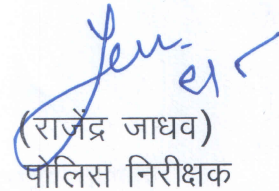 (राजेंद्र जाधव)
पोलिस निरीक्षक